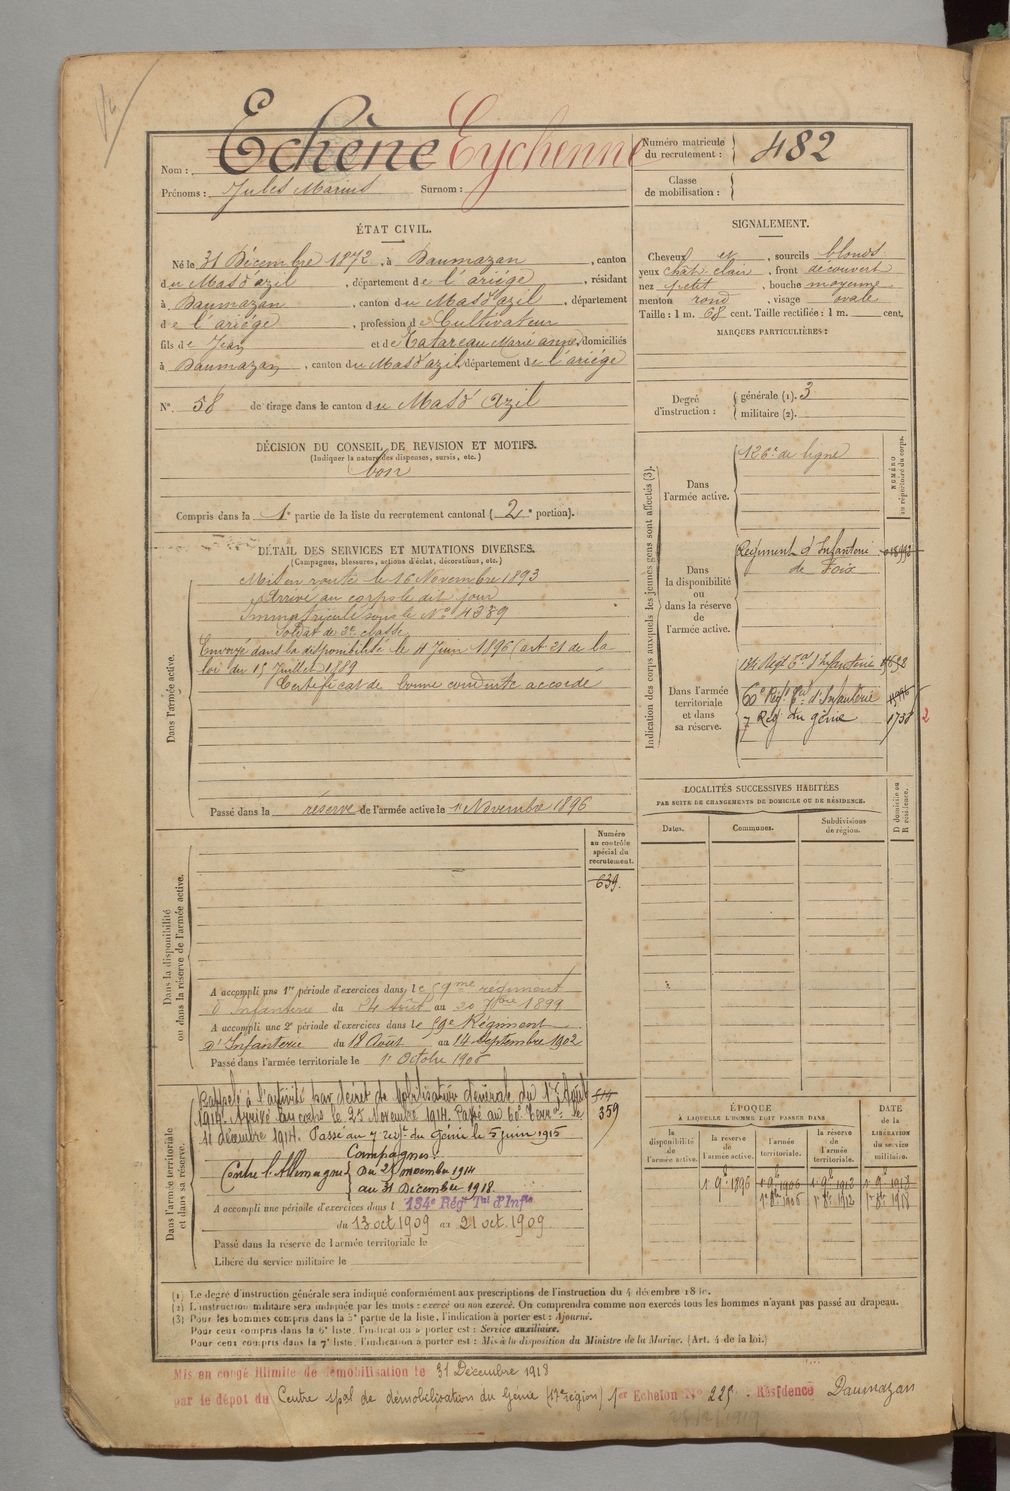 Echène Eychenne
Nom :
Prénoms : Jules Marius Surnom :
Numéro matricule du recrutement : 482
Classe de mobilisation :
ÉTAT CIVIL.
Né le 31 Décembre 1872, à Daumazan, canton
du Mas d'azil, département de l'ariége, résidant
à Daumazan, canton du Mas d'azil, département
de l'ariége, profession de Cultivateur
fils de Jean et de Catareau Marie anne, domiciliés
à Daumazan, canton du Mas d'azil, département de l'ariége
N° 58 de tirage dans le canton du Mas d'Azil
DÉCISION DU CONSEIL DE REVISION ET MOTIFS.
(Indiquer la nature des dispenses, sursis, etc.)
bon
Compris dans la 1e partie de la liste du recrutement cantonal (2e portion).
SIGNALEMENT.
Cheveux et, sourcils blonds
yeux chat. clair, front découvert
nez petit, bouche moyenne
menton rond, visage ovale
Taille : 1 m. 68 cent. Taille rectifiée : 1 m. cent.
MARQUES PARTICULIÈRES :
Degré d'instruction :
générale (1). 3
militaire (2).
DÉTAIL DES SERVICES ET MUTATIONS DIVERSES.
(Campagnes, blessures, actions d'éclat, décorations, etc.)
Dans l'armée active.
Mis en route le 16 Novembre 1893
Arrivé au corps le dit jour
Immatriculé sous le N° 4389
Soldat de 2e classe
Envoyé dans la disponibilité le 11 Juin 1896 (art 21 de la
loi du 15 Juillet 1889
Certificat de bonne conduite accordé
Passé dans la réserve de l'armée active le 1er Novembre 1896
Indication des corps auxquels les jeunes gens sont affectés (3).
NUMÉRO au répertoire du corps.
Dans l'armée active.
126e de ligne
Dans la disponibilité ou dans la réserve de l'armée active.
Régiment d'Infanterie
de Foix
Dans l'armée territoriale et dans sa réserve.
134 Régt Tal d'Infanterie
60e Régt Tal d'Infanterie
7 Rég. du génie 1738 2
Dans la disponibilité ou dans la réserve de l'armée active.
Numéro au contrôle spécial du recrutement.
639.
A accompli une 1re période d'exercices dans le 59me régiment
d'Infanterie du 24 Août au 20 7bre 1899
A accompli une 2e période d'exercices dans le 59e Régiment
d'Infanterie du 18 Août au 14 Septembre 1902
Passé dans l'armée territoriale le 1er Octobre 1906
LOCALITÉS SUCCESSIVES HABITÉES
PAR SUITE DE CHANGEMENTS DE DOMICILE OU DE RÉSIDENCE.
Dates. Communes. Subdivisions de région. D domicile ou R résidence.
Dans l'armée territoriale et dans sa réserve.
Rappelé à l'activité par décret de Mobilisation Générale du 1er Août
1914. Arrivé au corps le 25 Novembre 1914. Passé au 60e Terral le
11 décembre 1914. Passé au 7 régt du Génie le 5 juin 1915
359
Campagnes :
Contre l'Allemagne Du 25 novembre 1914
au 31 Décembre 1918
A accompli une période d'exercices dans l 134e Régt Tal d'Infie
du 13 oct 1909 au 21 oct. 1909.
Passé dans la réserve de l'armée territoriale le
Libéré du service militaire le
ÉPOQUE
À LAQUELLE L'HOMME DOIT PASSER DANS
la disponibilité de l'armée active. la réserve de l'armée active. l'armée territoriale. la réserve de l'armée territoriale.
DATE de la LIBÉRATION du service militaire.
(1) Le degré d'instruction générale sera indiqué conformément aux prescriptions de l'instruction du 4 décembre
(2) L'instruction militaire sera indiquée par les mots : exercé ou non exercé. On comprendra comme non exercés tous les hommes n'ayant pas passé au drapeau.
(3) Pour les hommes compris dans la 5e partie de la liste, l'indication à porter est : Ajourné.
Pour ceux compris dans la 6e liste, l'indication à porter est : Service auxiliaire.
Pour ceux compris dans la 7e liste, l'indication à porter est : Mis à la disposition du Ministre de la Marine. (Art. 4 de la loi.)
Mis en congé illimité de démobilisation le 31 Décembre 1918
par le dépot du Centre spal de démobilisation du Génie (17e région) 1er Echelon N° 225. Résidence Daumazan